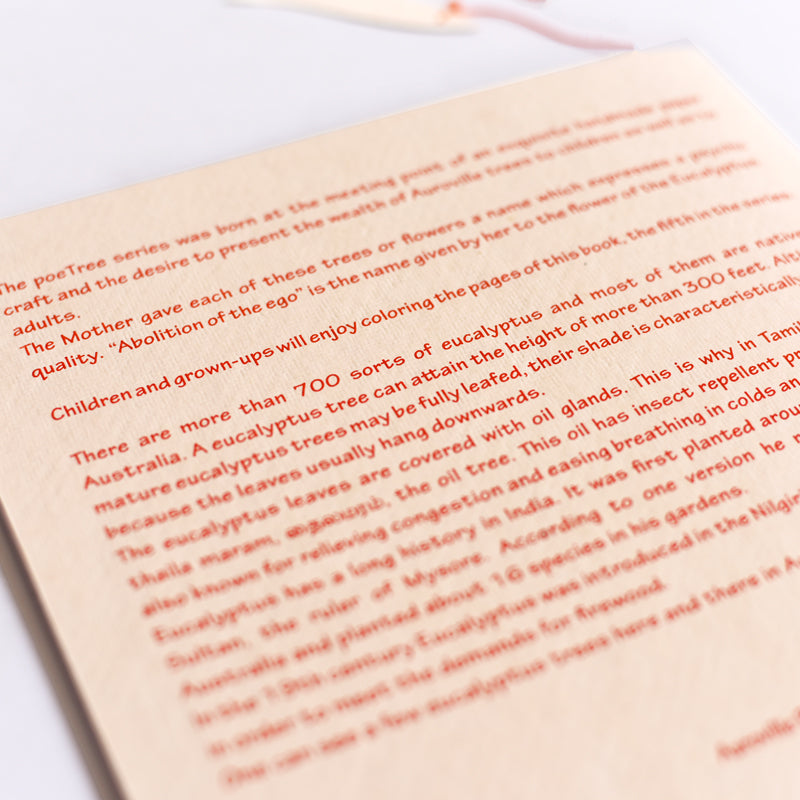 The poeTree series was born at the meeting point of an exquisite handmade paper
craft and the desire to present the wealth of Auroville trees to children as well as to
adults.
The Mother gave each of these trees or flowers a name which expresses a
quality. “Abolition of the ego” is the name given by her to the flower of the Eucalyptus
Children and grown-ups will enjoy coloring the pages of this book, the fifth in the series.
There are more than 700 sorts of eucalyptus and most of them are native
Australia. A eucalyptus tree can attain the height of more than 300 feet.
mature eucalyptus trees may be fully leafed, their shade is characteristically
because the leaves usually hang downwards.
The eucalyptus leaves are covered with oil glands. This is why in Tamil
thaila maram, the oil tree. This oil has insect repellent
also known for relieving congestion and easing breathing in colds
Eucalyptus has a long history in India. It was first planted
Sultan, the ruler of Mysore. According to one version he
Australia and planted about 16 species in his gardens.
In the 19th century Eucalyptus was introduced in the
in order to meet the demands for firewood.
One can see a few eucalyptus trees here and there in